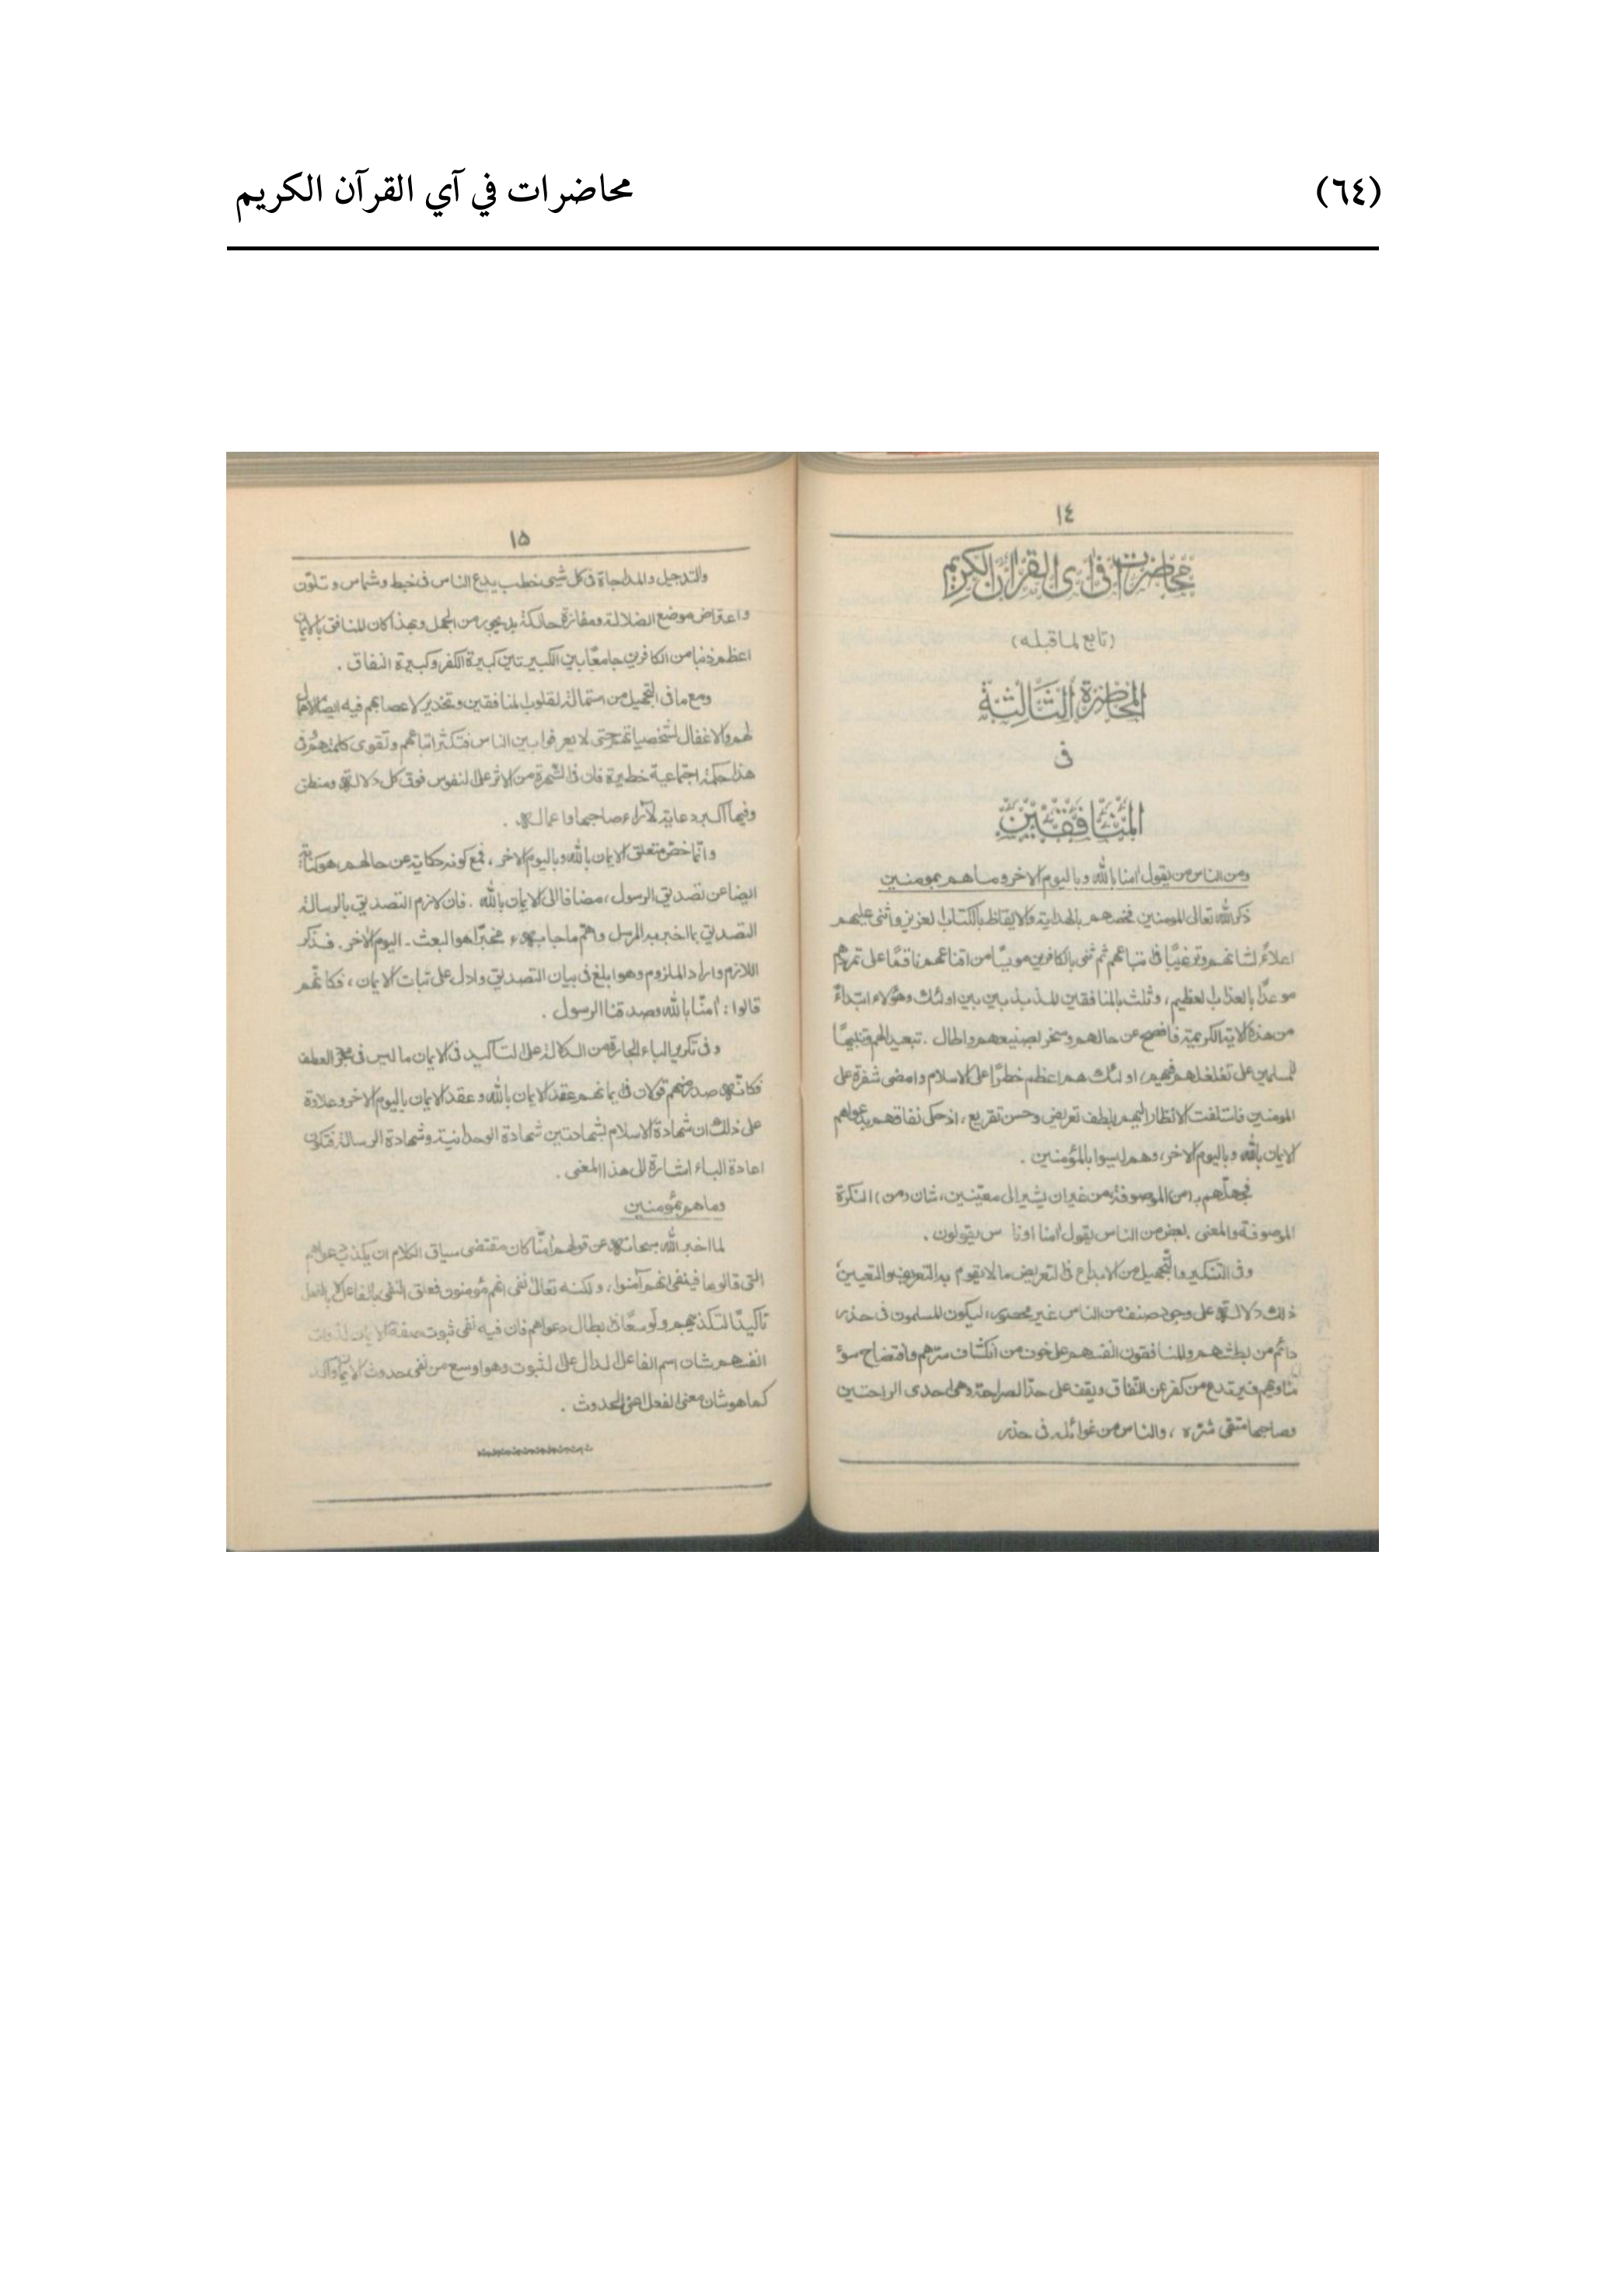 (٦٤)
محاضرات في آي القرآن الكريم
١٤
محاضرات في آى القرآن الكريم
(تابع لما قبله)
المحاضرة الثالثة
فى
المنافقين
ومن الناس من يقول امنا بالله وباليوم الاخر وما هم بمومنين
ذكر الله تعالى المومنين فخصهم بالهداية والايقاظ بالكتاب العزيز واثنى عليهم
اعلاءً لشانهم وترغيبًا فى اتباعهم ثم ثنى بالكافرين من ناقمًا على تمردهم
موعدًا بالعذاب العظيم، وثلث بالمنافقين المذبذبين بين اولئك وهؤلاء ابتداءً
من هذه الاية الكريمة فافصح عن حالهم وسخر لصنيعهم واطال . تبعيدا لهم وتنبيهًا
للمسلمين على تغلغلهم فيهم، اولئك هم اعظم خطرًا على الاسلام وامضى شفرة على
المومنين فاستلفت الانظار اليهم بلطف تعريض وحسن تقريع، اذ حكى نفاقهم بدعواهم
الايمان بالله وباليوم الاخر، وهم ليسوا بالمؤمنين .
(من) الموصوفة من غير ان يشير الى معيّنين، شان (من) النكرة
الموصوفة والمعنى بعض من الناس يقول امنا او ناس يقولون .
وفى التنكير والتجهيل من الابداع فى التعريض ما لا يقوم به التعريف والتعيين
ذلك دلالته على وجود صنف من الناس غير محصور، ليكون المسلمون فى حذر
دائم من بطشهم وللمنافقون انفسهم على خوف من انكشاف سترهم وافتضاح سوٴ
فيرتدع من كفر عن النفاق ويقف على حدّ الصراحة وهى احدى الراحتين
وصاحبها متقى شرّه ، والناس من غوائله فى حذر
١٥
والتدجيل والمداجاة فى كل شيئ خطب يدع الناس فى خبط وشماس وتلوّن
واعتراض موضع الضلالة ومفازة حالكة من الجهل وبهذا كان المنافق
اعظم ذنبا من الكافرين جامعًا بين الكبيرتين كبيرة الكفر وكبيرة النفاق .
ومع ما فى التجهيل من استمالة لقلوب المنافقين وتخدير لاعصابهم فيه ايضا الاهمال
لهم والاغفال لشخصياتهم حتى لا يعرفوا بين الناس فتكثر اتباعهم وتقوى كلمتهم وفى
هذا حكمة اجتماعية خطيرة فان فى الشهرة من الاثر على النفوس فوق كل دلالة ومنطق
وفيها اكبر دعاية لآراء صاحبها واعماله .
وانما خص متعلق الايمان بالله وباليوم الاخر، فمع كونه حكاية عن حالهم هو كناية
ايضا عن تصديق الرسول، مضافا الى الايمان بالله . فان لازم التصديق بالرسالة
التصديق بما اخبر به المرسل واهم ما جاء به مخبرًا هو البعث ـ اليوم الآخر . فذكر
اللازم واراد الملزوم وهو ابلغ فى بيان التصديق وادل على ثبات الايمان، فكانهم
قالوا : امنّا بالله وصدقنا الرسول .
وفى تكرير الباء الجارة من الدلالة على التاكيد فى الايمان ما ليس فى مجرّد العطف
فكانّه صدر منهم قولان فى ايمانهم عقد الايمان بالله وعقد الايمان باليوم الاخر وعلاوة
على ذلك ان شهادة الاسلام بشهادتين شهادة الوحدانية وشهادة الرسالة فتكون
اعادة الباء اشارة الى هذا المعنى .
وما هم بمؤمنين
لما اخبر الله سبحانه عن قولهم امنّا كان مقتضى سياق الكلام ان يكذب دعواهم
التى قالوها فينفى انهم آمنوا، ولكنه تعالى نفى انهم مؤمنون فعلق النفى بالفاعل لا بالفعل
تاكيدًا لتكذيبهم وتوسعًا فى ابطال دعواهم فان فيه نفى ثبوت صفة الايمان لذوات
انفسهم شان اسم الفاعل الدال على الثبوت وهو اوسع من نفى حدوث الايمان وآكد
كما هو شان معنى الفعل اعنى الحدوث .